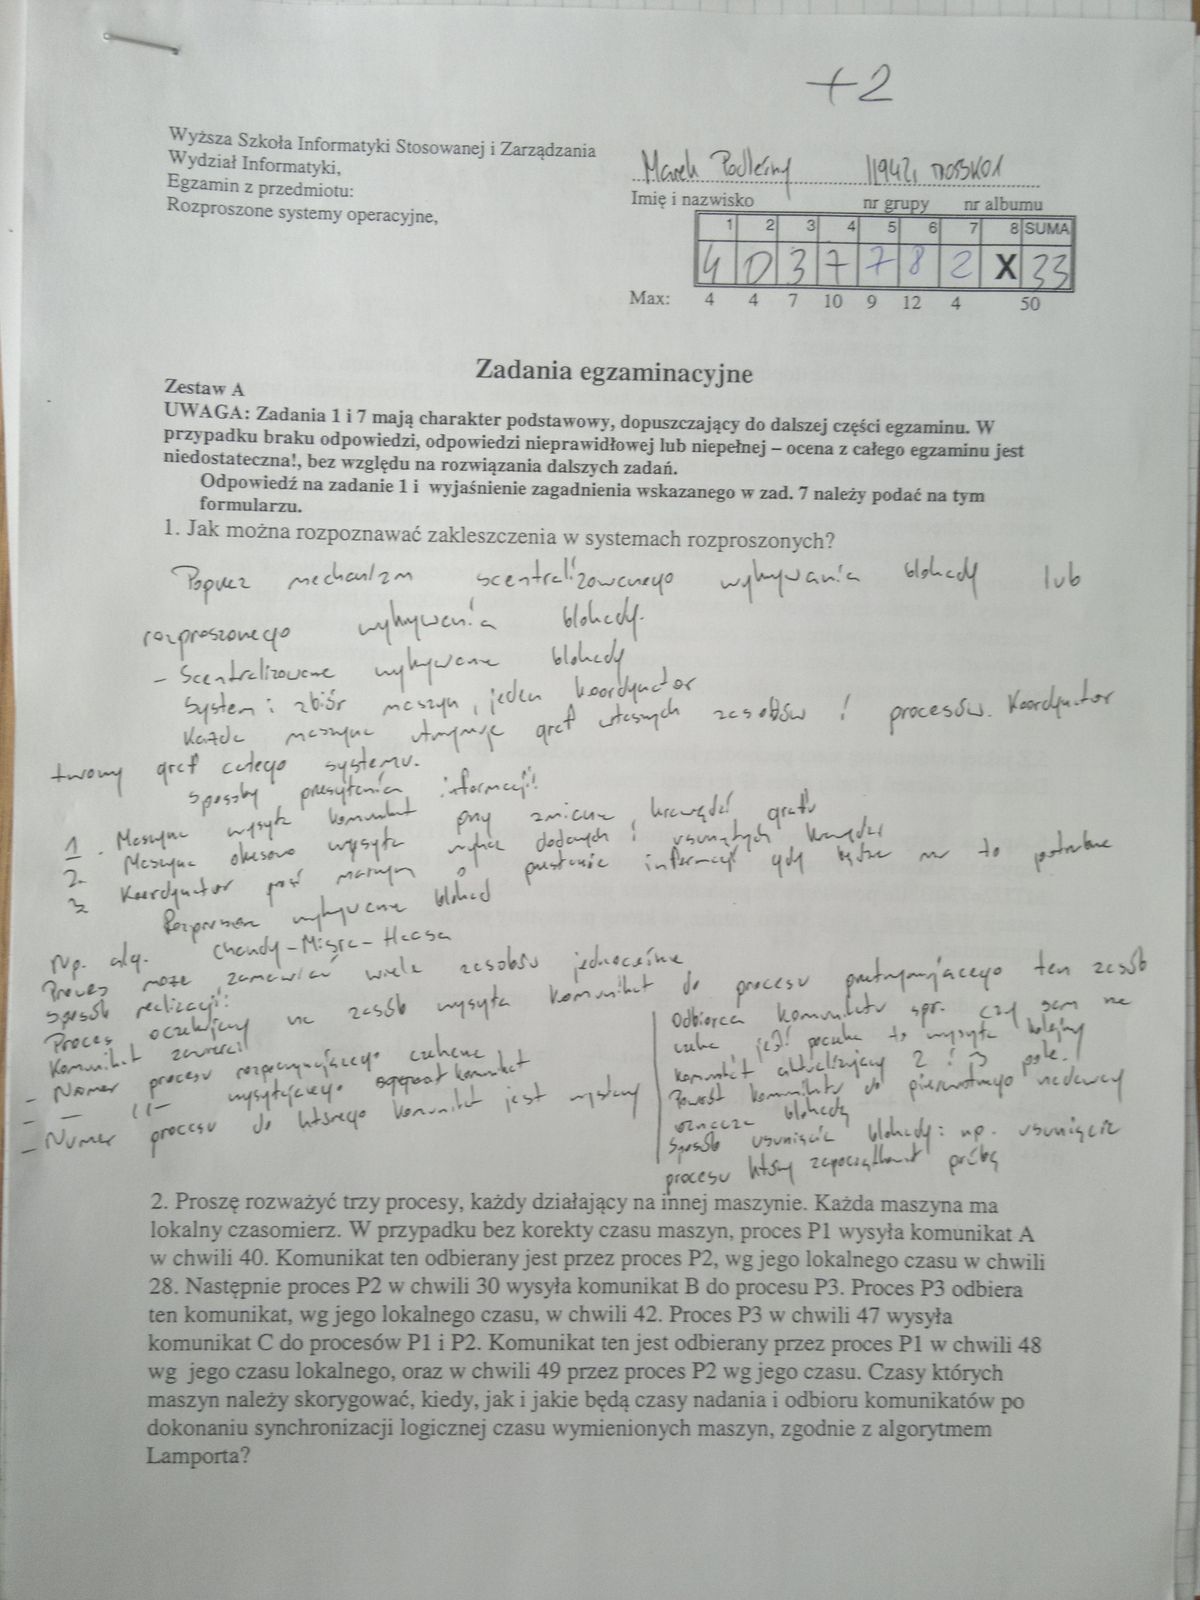 +2
Wyższa Szkoła Informatyki Stosowanej i Zarządzania
Wydział Informatyki,
Egzamin z przedmiotu:
Rozproszone systemy operacyjne,
Marek Podleśny 119421
Imię i nazwisko nr grupy nr albumu
1 2 3 4 5 6 7 8 SUMA
4 0 3 7 7 8 2 X 33
Max: 4 4 7 10 9 12 4 50
Zadania egzaminacyjne
Zestaw A
UWAGA: Zadania 1 i 7 mają charakter podstawowy, dopuszczający do dalszej części egzaminu. W
przypadku braku odpowiedzi, odpowiedzi nieprawidłowej lub niepełnej – ocena z całego egzaminu jest
niedostateczna!, bez względu na rozwiązania dalszych zadań.
Odpowiedź na zadanie 1 i wyjaśnienie zagadnienia wskazanego w zad. 7 należy podać na tym
formularzu.
1. Jak można rozpoznawać zakleszczenia w systemach rozproszonych?
Poprzez mechanizm scentralizowanego wykrywania blokady lub
rozproszonego wykrywania blokady.
- scentralizowane wykrywanie blokady
System: zbiór maszyn, jeden koordynator
Każda maszyna utrzymuje graf własnych zasobów i procesów. Koordynator
tworzy graf całego systemu.
sposoby przesyłania informacji:
1. Maszyna wysyła komunikat przy zmianie krawędzi grafu
2. Maszyna okresowo wysyła wykaz dodanych i usuniętych krawędzi
3. Koordynator prosi maszyny o przesłanie informacji gdy będzie mu to potrzebne
Rozproszone wykrywanie blokad
Np. alg. Chandy-Misra-Haasa
Proces może zamawiać wiele zasobów jednocześnie
Sposób realizacji:
Proces oczekujący na zasób wysyła komunikat do procesu przetrzymującego ten zasób
Komunikat zawiera:
- Numer procesu rozpoczynającego czekanie
- -||- wysyłającego komunikat
- Numer procesu do którego komunikat jest wysyłany
Odbiorca komunikatu spr. czy sam na
coś czeka, jeśli to wysyła kolejny
komunikat aktualizujący 2 i 3 pole.
Powrót komunikatu do pierwotnego nadawcy
oznacza blokadę
Sposób usunięcia blokady: np. usunięcie
procesu który zapoczątkował próbę
2. Proszę rozważyć trzy procesy, każdy działający na innej maszynie. Każda maszyna ma
lokalny czasomierz. W przypadku bez korekty czasu maszyn, proces P1 wysyła komunikat A
w chwili 40. Komunikat ten odbierany jest przez proces P2, wg jego lokalnego czasu w chwili
28. Następnie proces P2 w chwili 30 wysyła komunikat B do procesu P3. Proces P3 odbiera
ten komunikat, wg jego lokalnego czasu, w chwili 42. Proces P3 w chwili 47 wysyła
komunikat C do procesów P1 i P2. Komunikat ten jest odbierany przez proces P1 w chwili 48
wg jego czasu lokalnego, oraz w chwili 49 przez proces P2 wg jego czasu. Czasy których
maszyn należy skorygować, kiedy, jak i jakie będą czasy nadania i odbioru komunikatów po
dokonaniu synchronizacji logicznej czasu wymienionych maszyn, zgodnie z algorytmem
Lamporta?